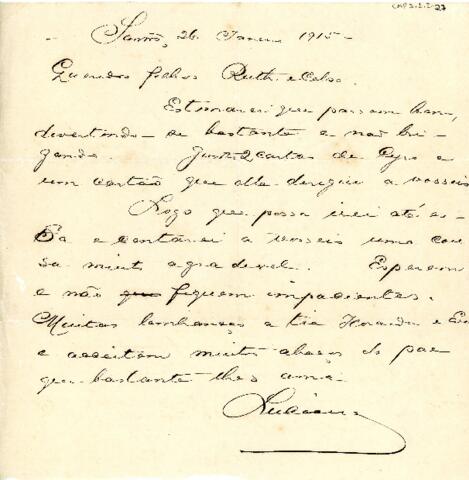 Santos, 26 Janeiro 1915 -
Queridos filhos Ruth e Celso.
Estimarei que passem bem,
divertindo-se bastante e não bri-
gando. Junto 2 cartas de Cyro e
um cartão que elle dirigiu a vosseis
Logo que possa irei até ei-
sa e contarei a vosseis uma cou
sa muito agradavel. Esperem
e não que fiquem impacientes.
Muitas lembranças a tia e
e acceitem muitos abraços do pae
que bastante lhes ama.